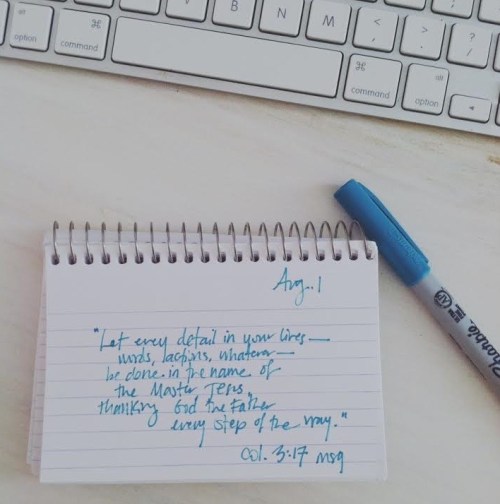 V B N M < , > . ? /
alt ⌘ ⌘ alt ◄
option command command option
Aug. 1
"Let every detail in your lives—
words, actions, whatever—
be done in the name of
the Master Jesus,
thanking God the Father
every step of the way."
Col. 3:17 msg
Sharpie